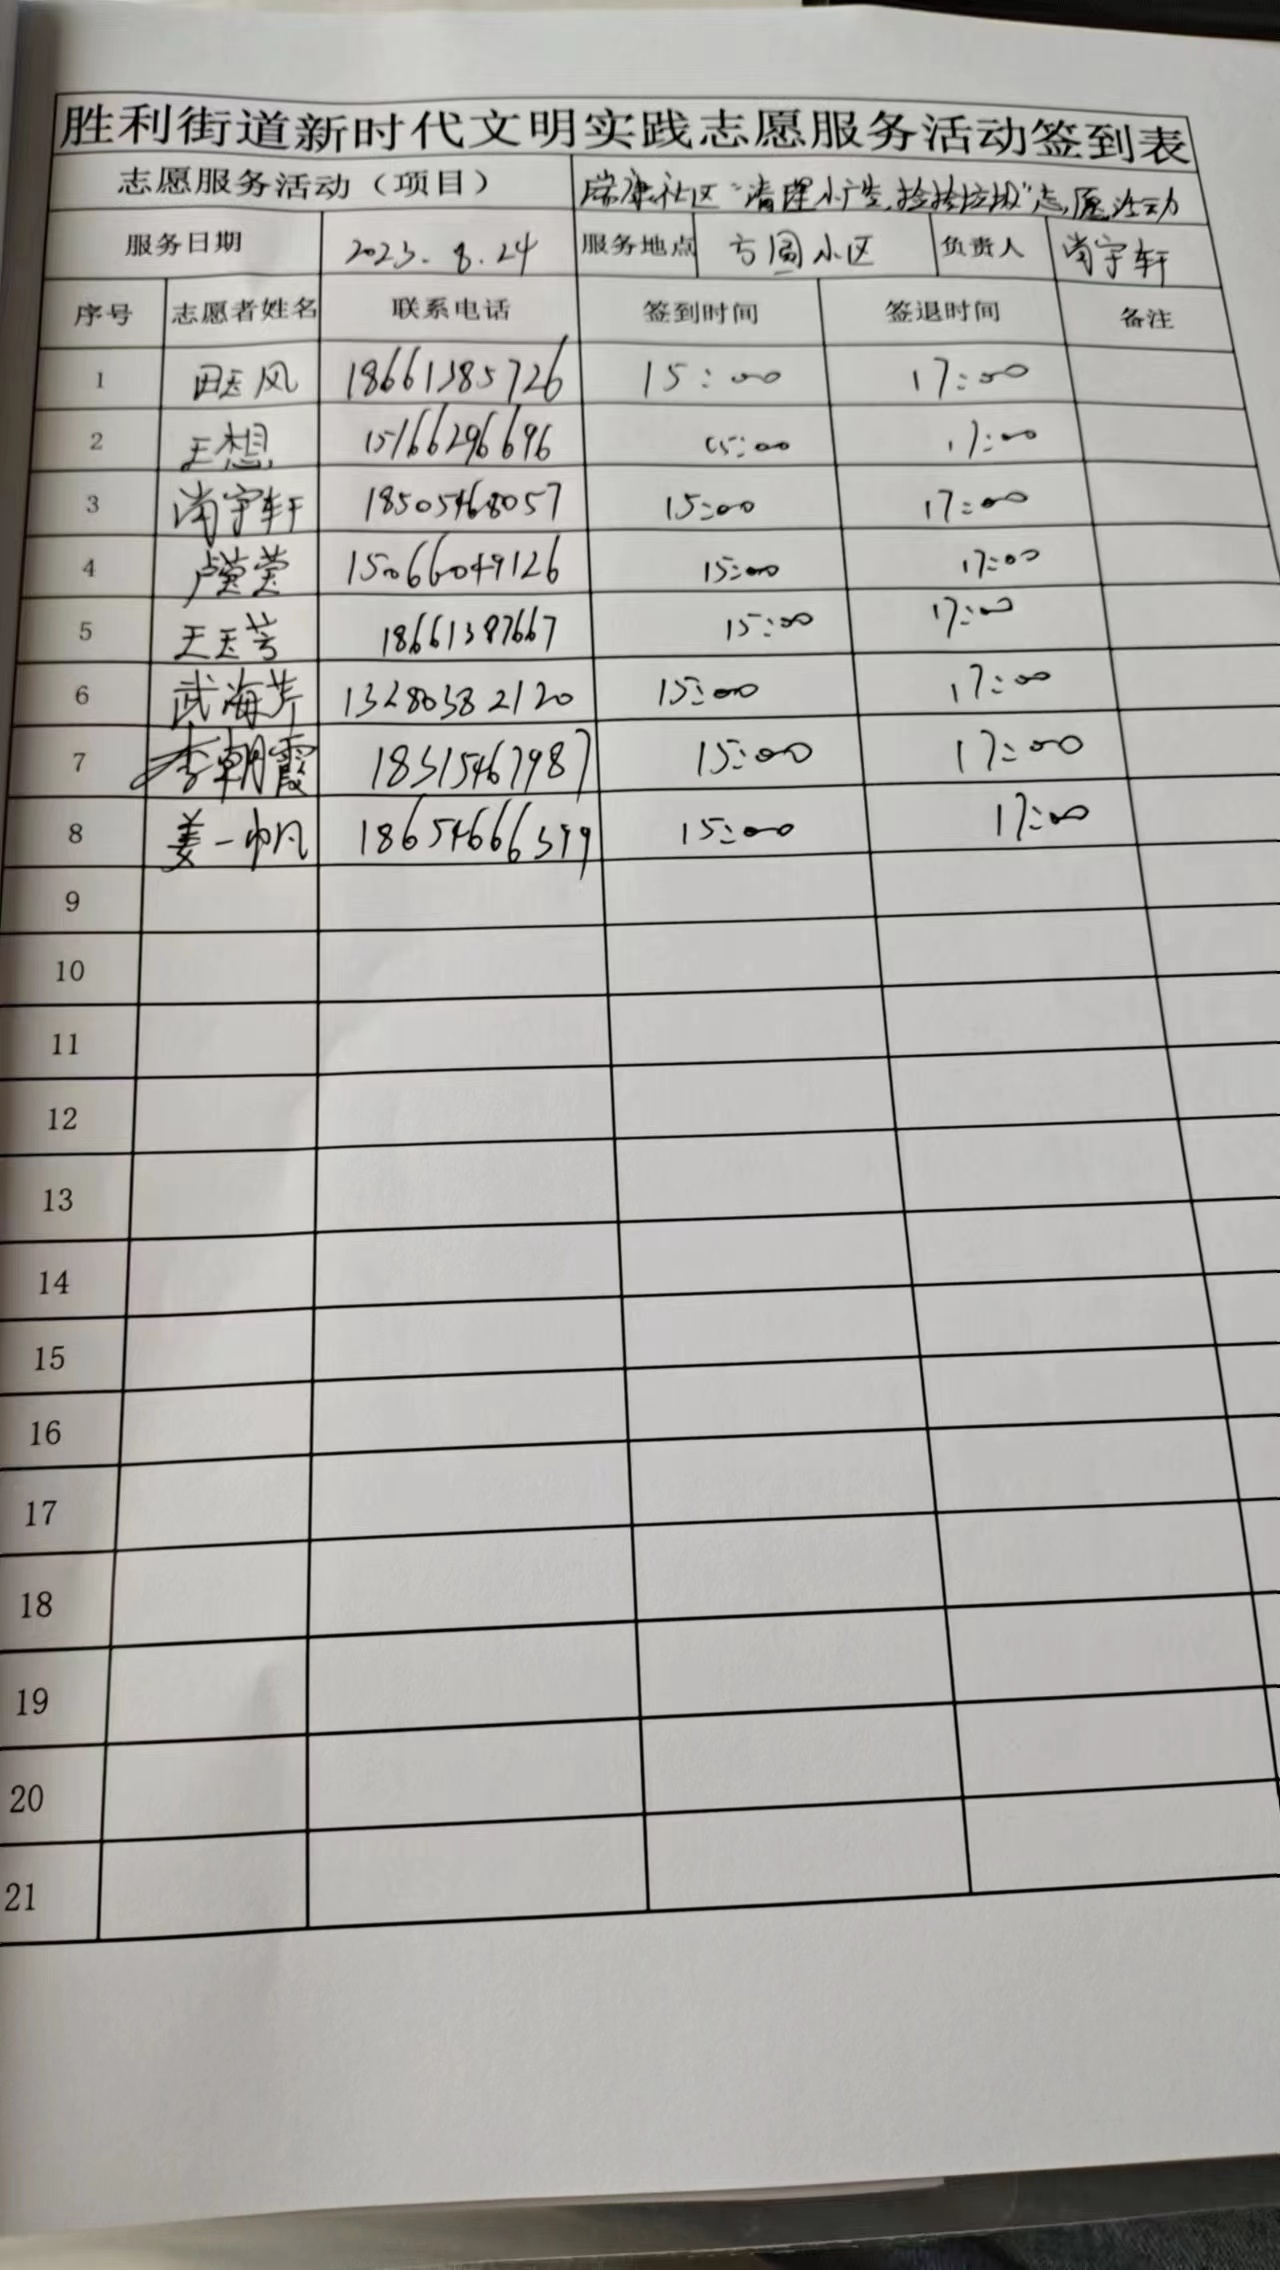 胜利街道新时代文明实践志愿服务活动签到表
志愿服务活动（项目） 瑞康社区“清理小广告，捡捡垃圾”志愿活动
服务日期 2023.8.24 服务地点 方圆小区 负责人 尚宇轩
序号 志愿者姓名 联系电话 签到时间 签退时间 备注
1 田玉风 18661385726 15:00 17:00
2 王想 15166296696 15:00 17:00
3 尚宇轩 18505468057 15:00 17:00
4 卢莹莹 15066049126 15:00 17:00
5 王玉芳 18661387667 15:00 17:00
6 武海芹 13280382120 15:00 17:00
7 李朝霞 18315467987 15:00 17:00
8 姜一帆 18654666399 15:00 17:00
9
10
11
12
13
14
15
16
17
18
19
20
21